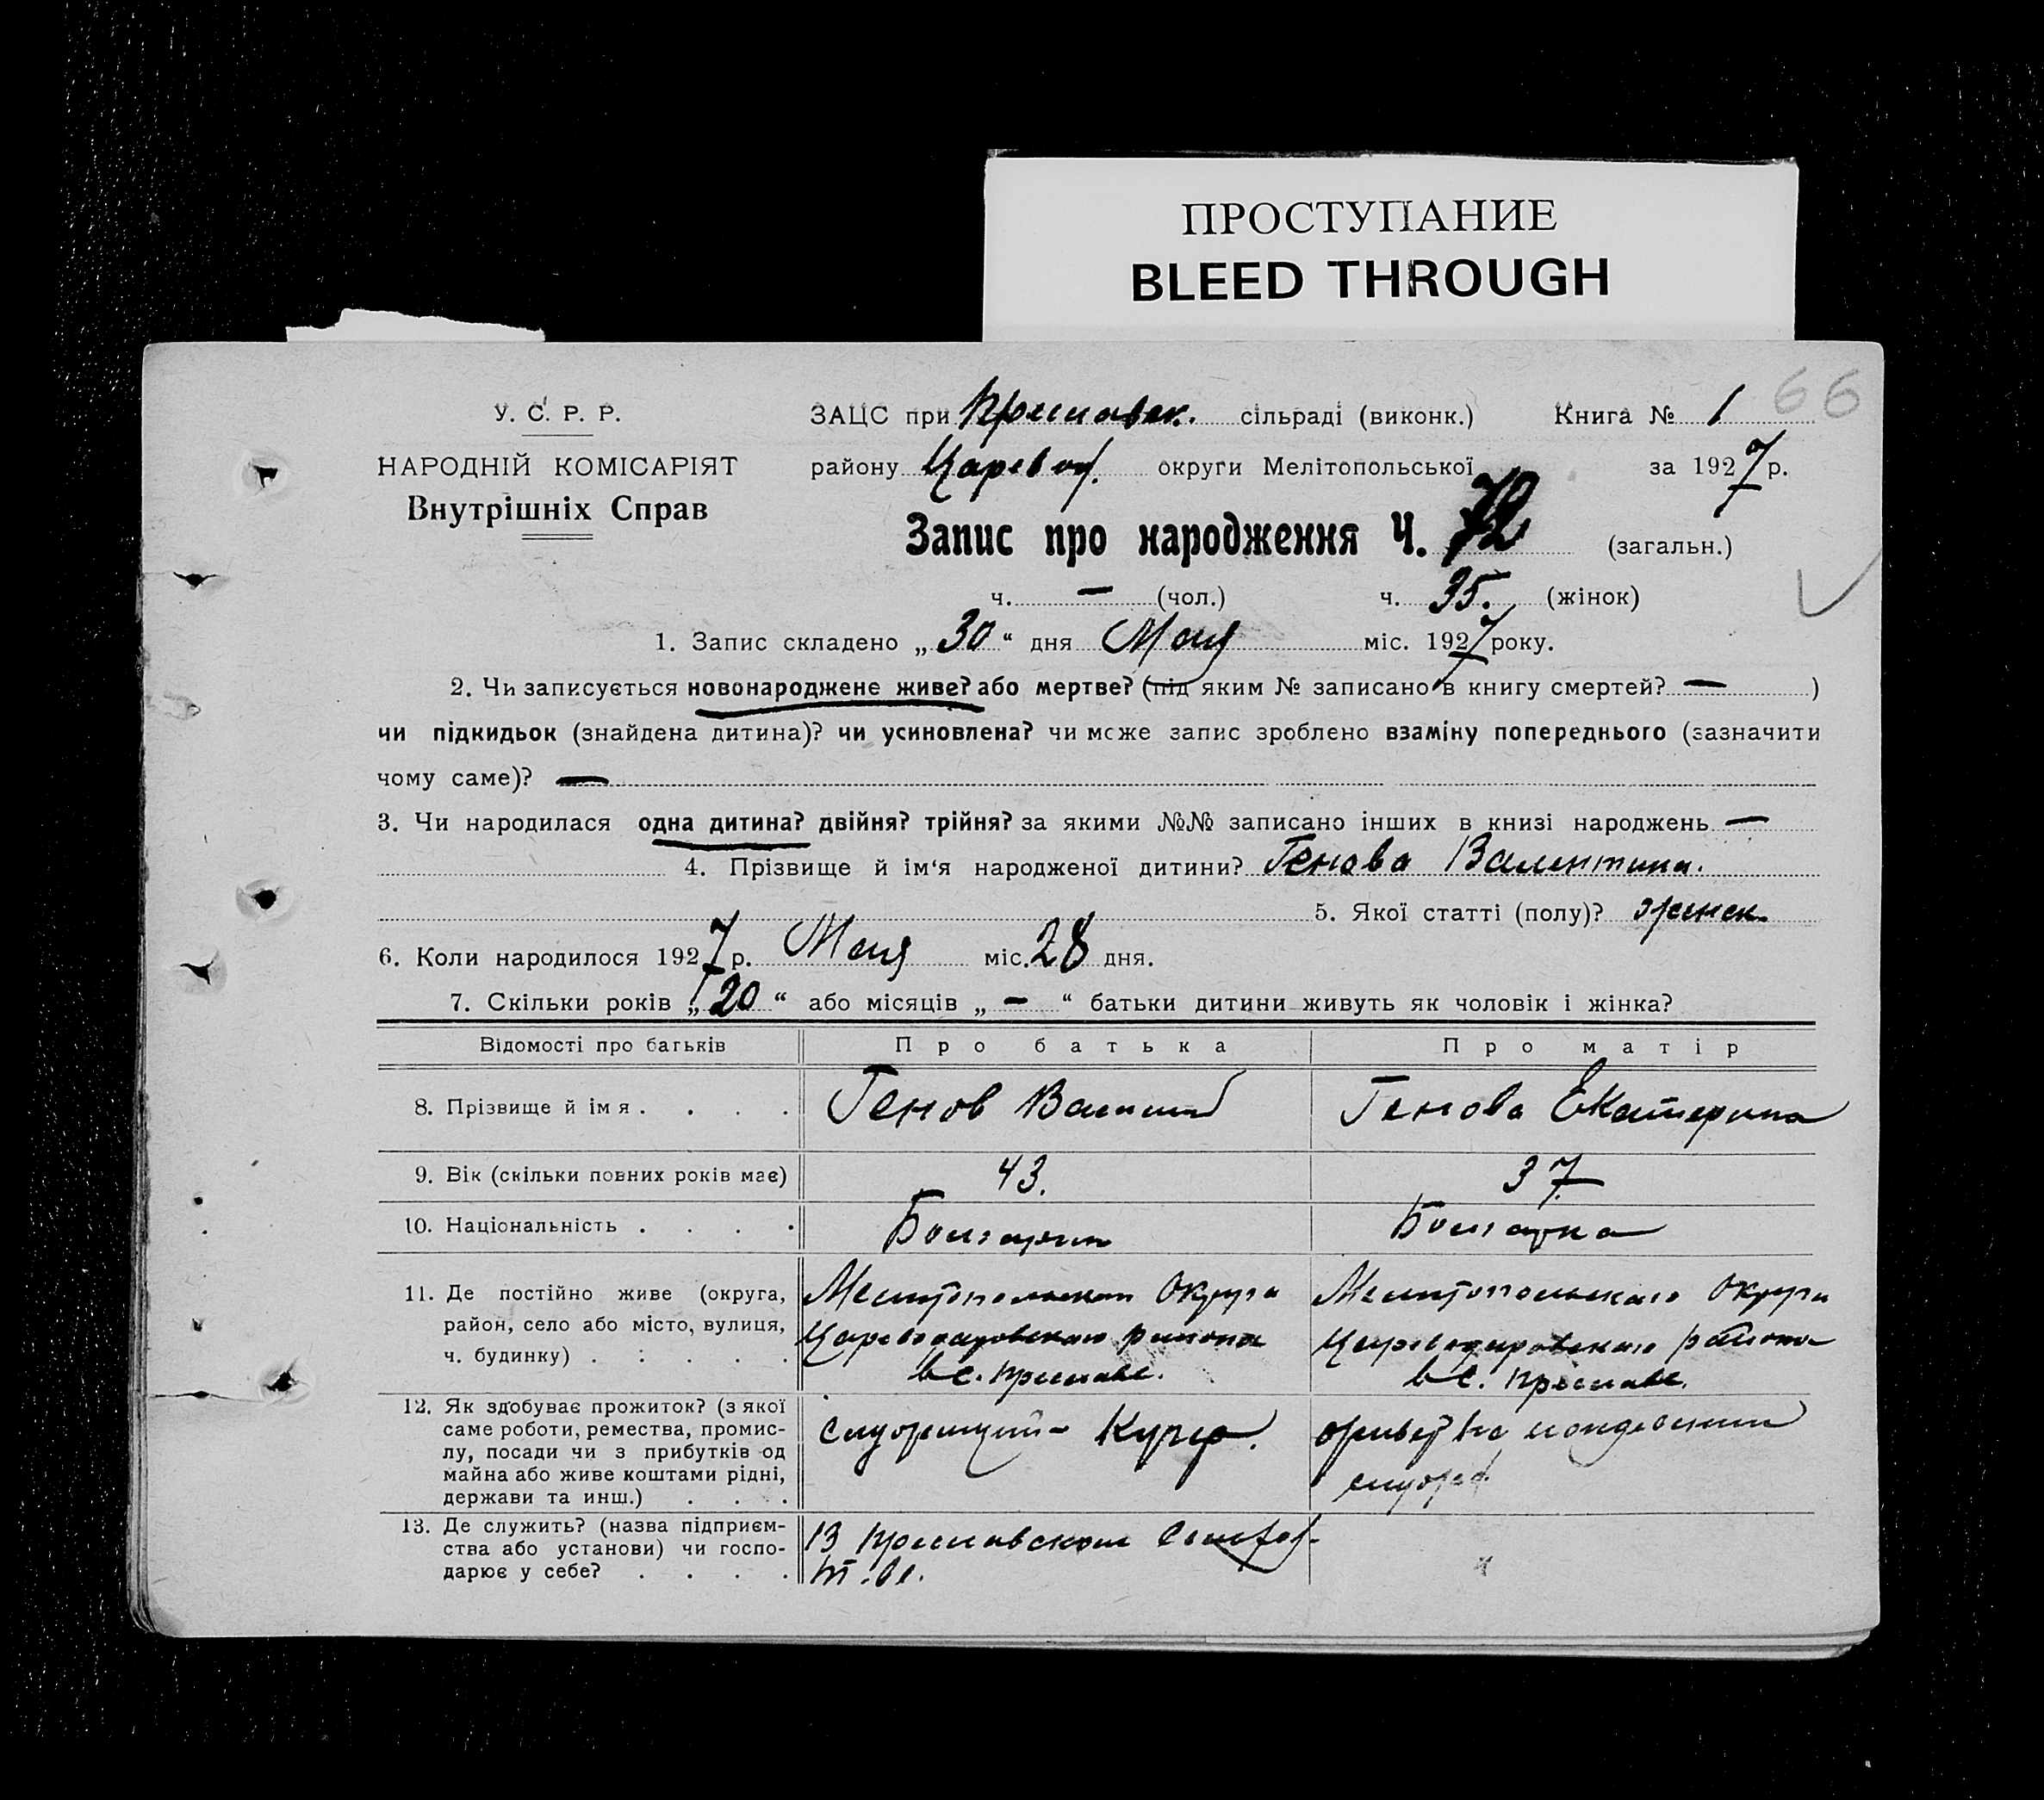 ПРОСТУПАНИЕ
BLEED THROUGH
У. С. Р. Р.
НАРОДНІЙ КОМІСАРІЯТ
Внутрішніх Справ
ЗАЦС при Преславск. сільраді (виконк.) Книга № 1 66
району Царевод. округи Мелітопольської за 1927 р.
Запис про народження Ч. 72 (загальн.)
ч. — (чол.) ч. 35. (жінок)
1. Запис складено „ 30 “ дня Мая міс. 1927 року.
2. Чи записується новонароджене живе? або мертве? (під яким № записано в книгу смертей? — )
чи підкидьок (знайдена дитина)? чи усиновлена? чи може запис зроблено взаміну попереднього (зазначити
чому саме)? —
3. Чи народилася одна дитина? двійня? трійня? за якими №№ записано інших в книзі народжень —
4. Прізвище й ім‘я народженої дитини? Генова Валентина.
5. Якої статті (полу)? женск.
6. Коли народилося 1927 р. Мая міс. 28 дня.
7. Скільки років „ 20 “ або місяців „ — “ батьки дитини живуть як чоловік і жінка?
Відомості про батьків Про батька Про матір
8. Прізвище й ім я . . . . Генов Генова Екатерина
9. Вік (скільки повних років має) 43. 37.
10. Національність . . . . Болгарин Болгарка
11. Де постійно живе (округа, Мелитопольскаго Округа Мелитопольскаго Округа
район, село або місто, вулиця, Цареводаровскаго района Цареводаровскаго района
ч. будинку) . . . . . в с. Преславе. в с. Преславе.
12. Як здобуває прожиток? (з якої
саме роботи, ремества, промис- служащий - Курер.
лу, посади чи з прибутків од
майна або живе коштами рідні,
держави та инш.) . . .
13. Де служить? (назва підприєм- В Преславском
ства або установи) чи госпо-
дарює у себе? . . . .